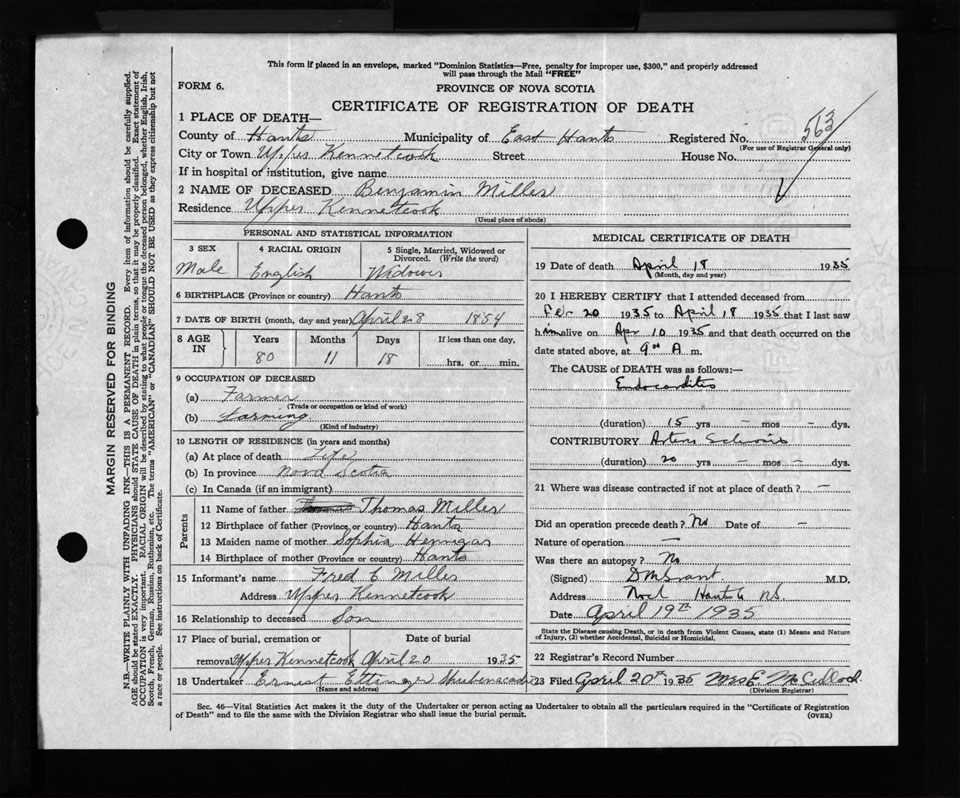 This form if placed in an envelope, marked "Dominion Statistics—Free, penalty for improper use, $300," and properly addressed
will pass through the Mail "FREE"
FORM 6.
PROVINCE OF NOVA SCOTIA
CERTIFICATE OF REGISTRATION OF DEATH
1 PLACE OF DEATH—
County of Hants Municipality of East Hants Registered No. 563
(For use of Registrar General only)
City or Town Upper Kennetcook Street House No.
If in hospital or institution, give name
2 NAME OF DECEASED Benjamin Miller
Residence Upper Kennetcook
(Usual place of abode)
PERSONAL AND STATISTICAL INFORMATION
3 SEX 4 RACIAL ORIGIN 5 Single, Married, Widowed or
Divorced. (Write the word)
Male English Widower
6 BIRTHPLACE (Province or country) Hants
7 DATE OF BIRTH (month, day and year) April 28 1854
8 AGE IN Years Months Days If less than one day,
80 11 18 hrs. or min.
9 OCCUPATION OF DECEASED
(a) Farmer
(Trade or occupation or kind of work)
(b) Farming
(Kind of industry)
10 LENGTH OF RESIDENCE (in years and months)
(a) At place of death Life
(b) In province Nova Scotia
(c) In Canada (if an immigrant)
Parents
11 Name of father Thomas Miller
12 Birthplace of father (Province or country) Hants
13 Maiden name of mother Sophia
14 Birthplace of mother (Province or country) Hants
15 Informant's name Fred E Miller
Address Upper Kennetcook
16 Relationship to deceased Son
17 Place of burial, cremation or Date of burial
removal Upper Kennetcook April 20 1935
18 Undertaker Ernest Ettinger
(Name and address)
MEDICAL CERTIFICATE OF DEATH
19 Date of death April 18 1935
(Month, day and year)
20 I HEREBY CERTIFY that I attended deceased from
Feb 20 1935 to April 18 1935 that I last saw
him alive on Apr 10 1935 and that death occurred on
date stated above, at 9 A m.
The CAUSE of DEATH was as follows:—
Endocarditis
(duration) 15 yrs – mos – dys.
CONTRIBUTORY
(duration) 20 yrs – mos – dys.
21 Where was disease contracted if not at place of death? –
Did an operation precede death? No Date of –
Nature of operation –
Was there an autopsy? No
(Signed) D M Grant M.D.
Address Noel Hants Co N.S.
Date April 19th 1935
State the Disease causing Death, or in death from Violent Causes, state (1) Means and Nature
of Injury, (2) whether Accidental, Suicidal or Homicidal.
22 Registrar's Record Number
23 Filed April 20th 1935 Mrs E. McCulloch
(Division Registrar)
Sec. 46—Vital Statistics Act makes it the duty of the Undertaker or person acting as Undertaker to obtain all the particulars required in the "Certificate of Registration
of Death" and to file the same with the Division Registrar who shall issue the burial permit. (OVER)
MARGIN RESERVED FOR BINDING
N.B.—WRITE PLAINLY WITH UNFADING INK—THIS IS A PERMANENT RECORD. Every item of information should be carefully supplied.
AGE should be stated EXACTLY. PHYSICIANS should STATE CAUSE OF DEATH in plain terms, so that it may be properly classified. Exact statement of
OCCUPATION is very important. RACIAL ORIGIN will be described by stating to what people or tongue the deceased person belonged, whether English, Irish,
Scotch, French, German, Russian, Ruthenian, etc. The terms "AMERICAN" or "CANADIAN" SHOULD NOT BE USED as they express citizenship but not
a race or people. See instructions on back of Certificate.